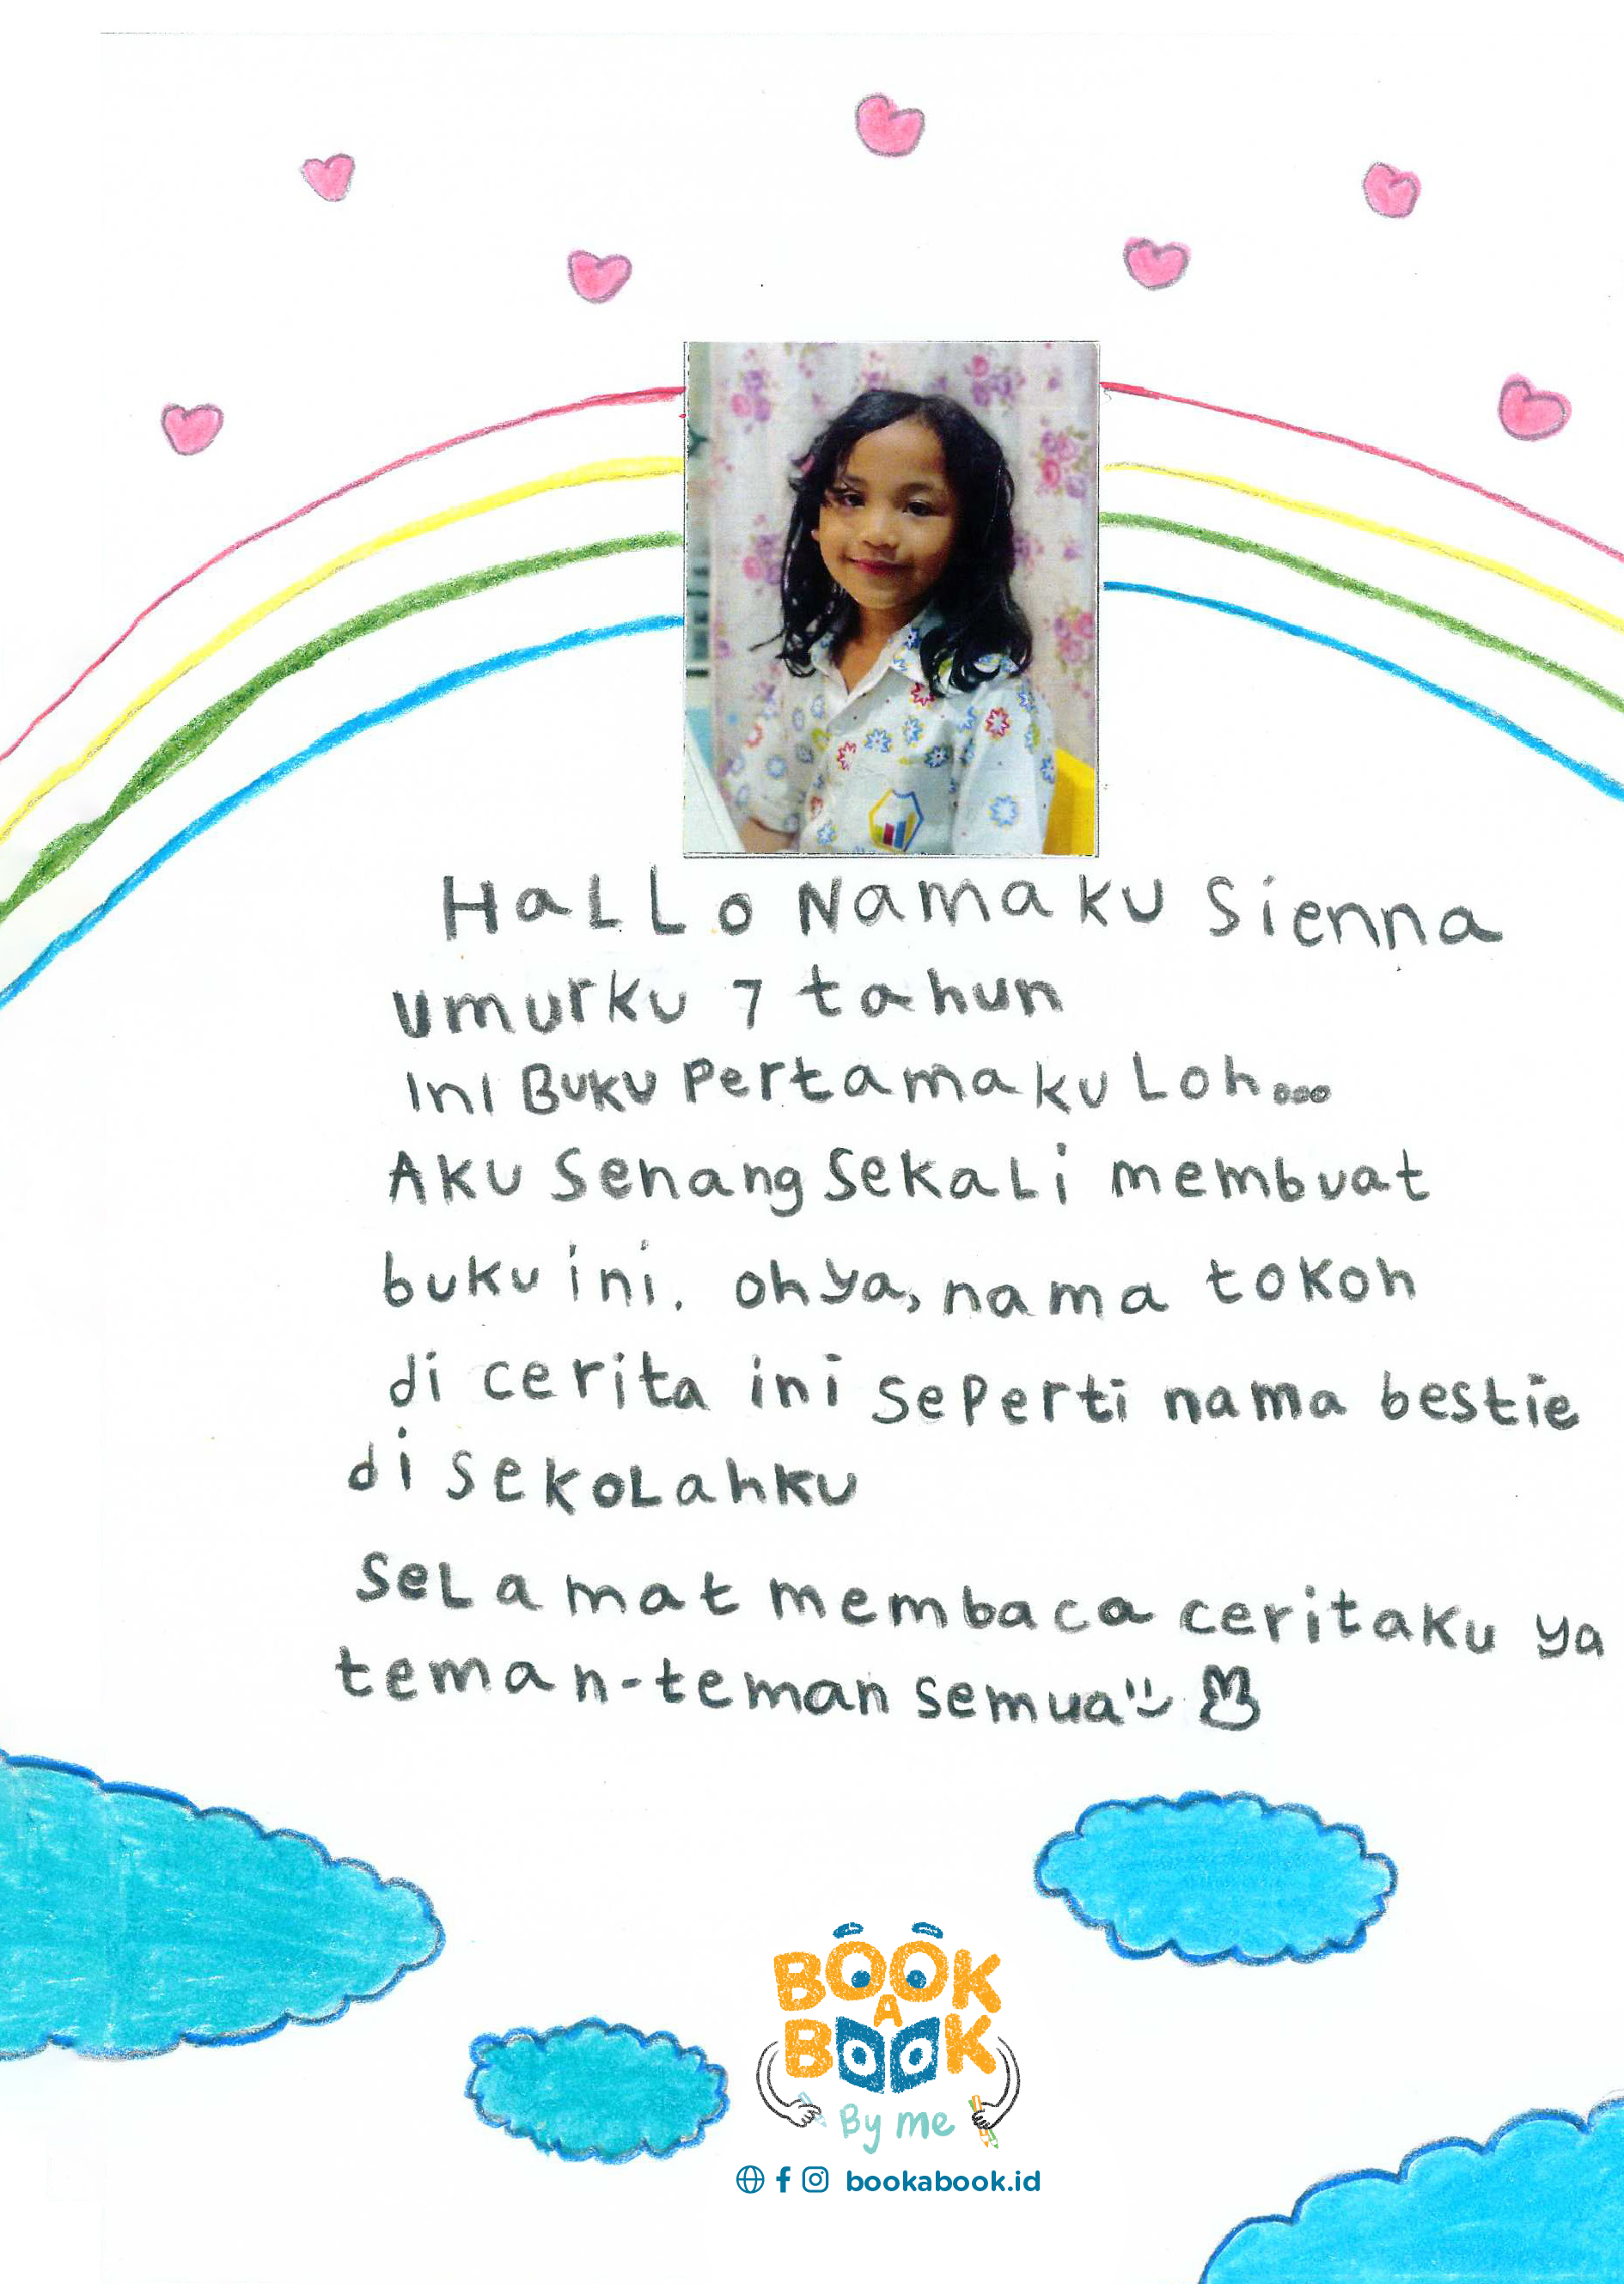 HaLLo Namaku Sienna
umurku 7 tahun
InI Buku Pertamaku Loh...
Aku Senang SekaLi membuat
buku ini. oh ya, nama tokoh
di cerita ini sePerti nama bestie
di sekoLahku
SeLamat membaca ceritaku ya
teman-teman semua
BOOK
A
BOOK
By me
bookabook.id